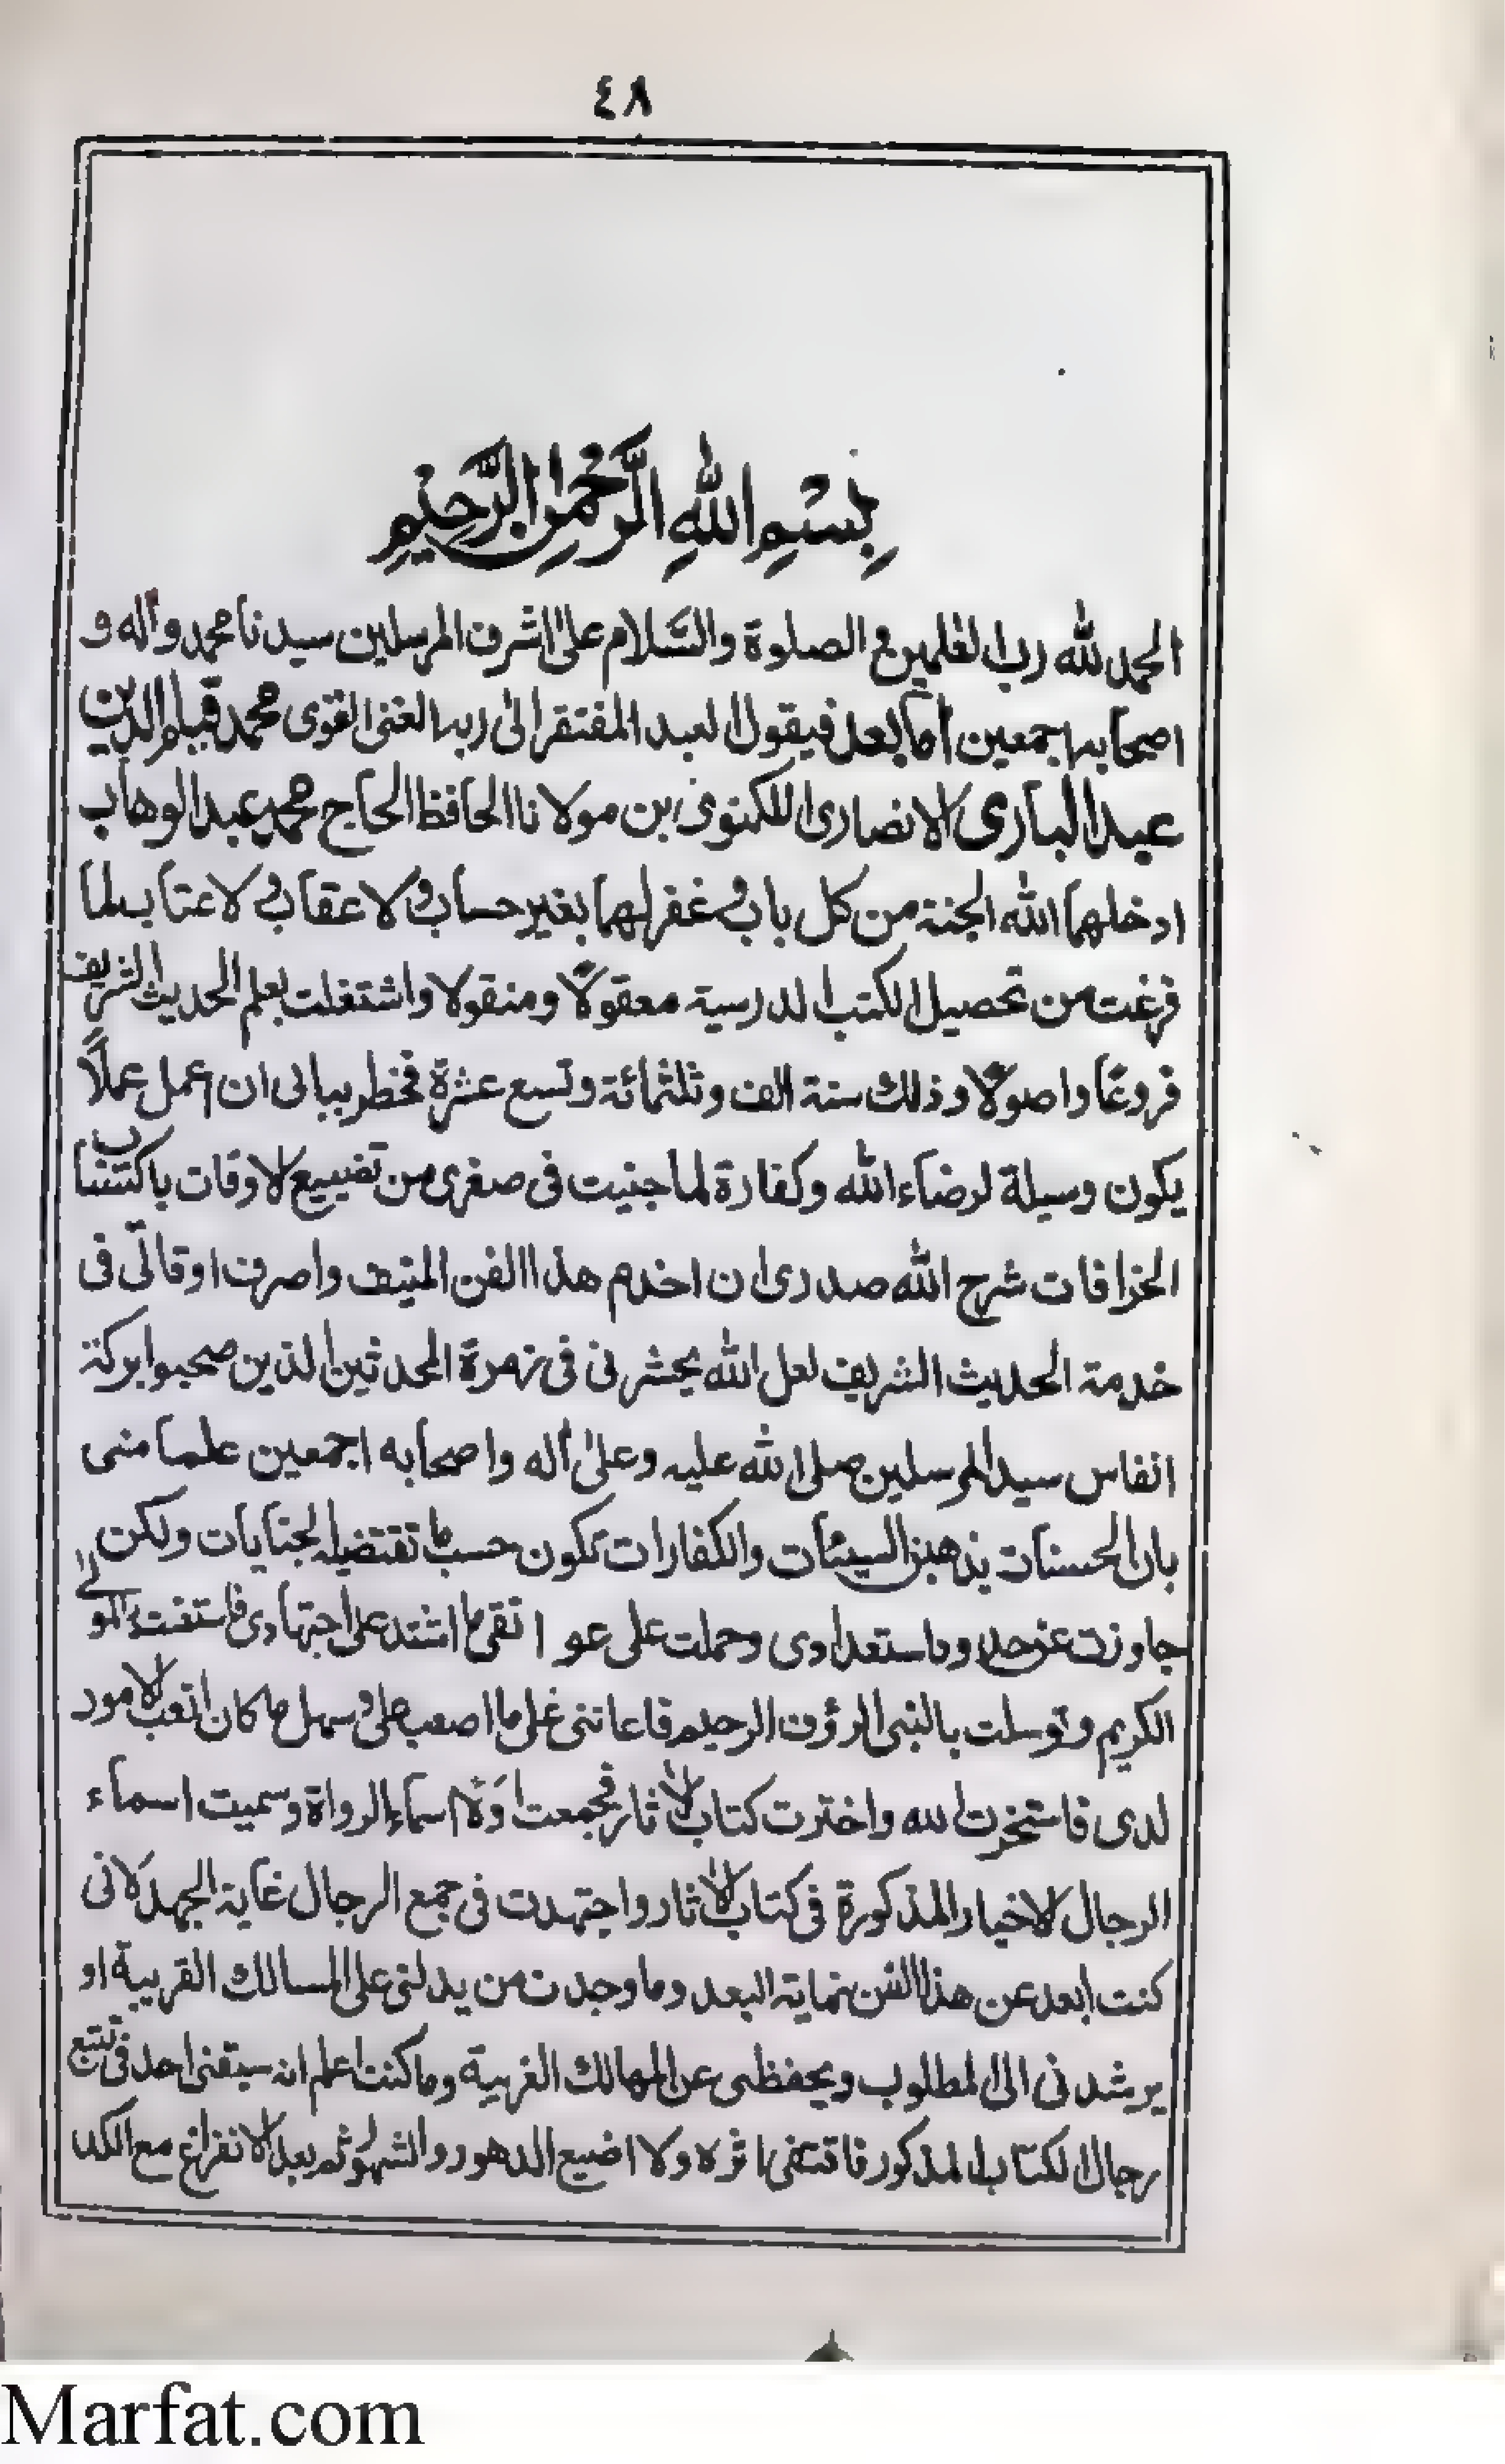 ٤٨
بِسْمِ اللهِ الرَّحْمٰنِ الرَّحِيْمِ
الحمد لله رب العٰلمين مع الصلوة والسَّلام علىٰ اشرف المرسلين سيدنا محمد وآله و
اصحابه اجمعين امّا بعد فيقول العبد المفتقر الىٰ ربه الغنى القوى محمد قيام الدين
عبد البارى الانصارى اللكنوى بن مولانا الحافظ الحاج محمد عبد الوهاب
ادخلهما الله الجنة من كل باب و غفر لهما بغير حساب و لا عقاب و لا عتاب لما
فرغت من تحصيل الكتب الدرسية معقولًا ومنقولا واشتغلت بعلم الحديث الشريف
فروعًا واصولًا وذلك سنة الف وثلثمائة وتسع عشرة فخطر ببالى ان اعمل عملًا
يكون وسيلة لرضاء الله وكفارة لما جنيت فى صغرى من تضييع الاوقات باكتساب
الخرافات شرح الله صدرى ان اخدم هذا الفن المنيف واصرف اوقاتى فى
خدمة الحديث الشريف لعل الله يحشرنى فى زمرة المحدثين الذين صحبوا بركة
انفاس سيد المرسلين صلى الله عليه وعلىٰ آله واصحابه اجمعين علما منى
بان الحسنات يذهبن السيئات والكفارات تكون حسب ما تقتضيه الجنايات ولكن
جاوزت عن حد وما استعدادى وحملت على عواتقى ما اشتد على اجتهادى فاستغثت المولىٰ
الكريم وتوسلت بالنبى الرؤف الرحيم فاعاننى على ما اصعب على و سهل ما كان اتعب الامور
لدى فاستخرت الله واخترت كتاب الآثار فجمعت اوَّلًا اسماء الرواة وسميت اسماء
الرجال الاخيار المذكورة فى كتاب الآثار واجتهدت فى جمع الرجال غاية الجهد لانى
كنت ابعد عن هذا الفن نهاية البعد وما وجدت من يدلنى على المسالك القريبة او
يرشدنى الى المطلوب ويحفظنى عن المهالك الغريبة وما كنت اعلم انه سبقنى احد فى تتبع
رجال الكتاب المذكور فاقتفى اثره ولا اضيع الدهور والشهور ثم بعد الانفراغ مع الكد
Marfat.com